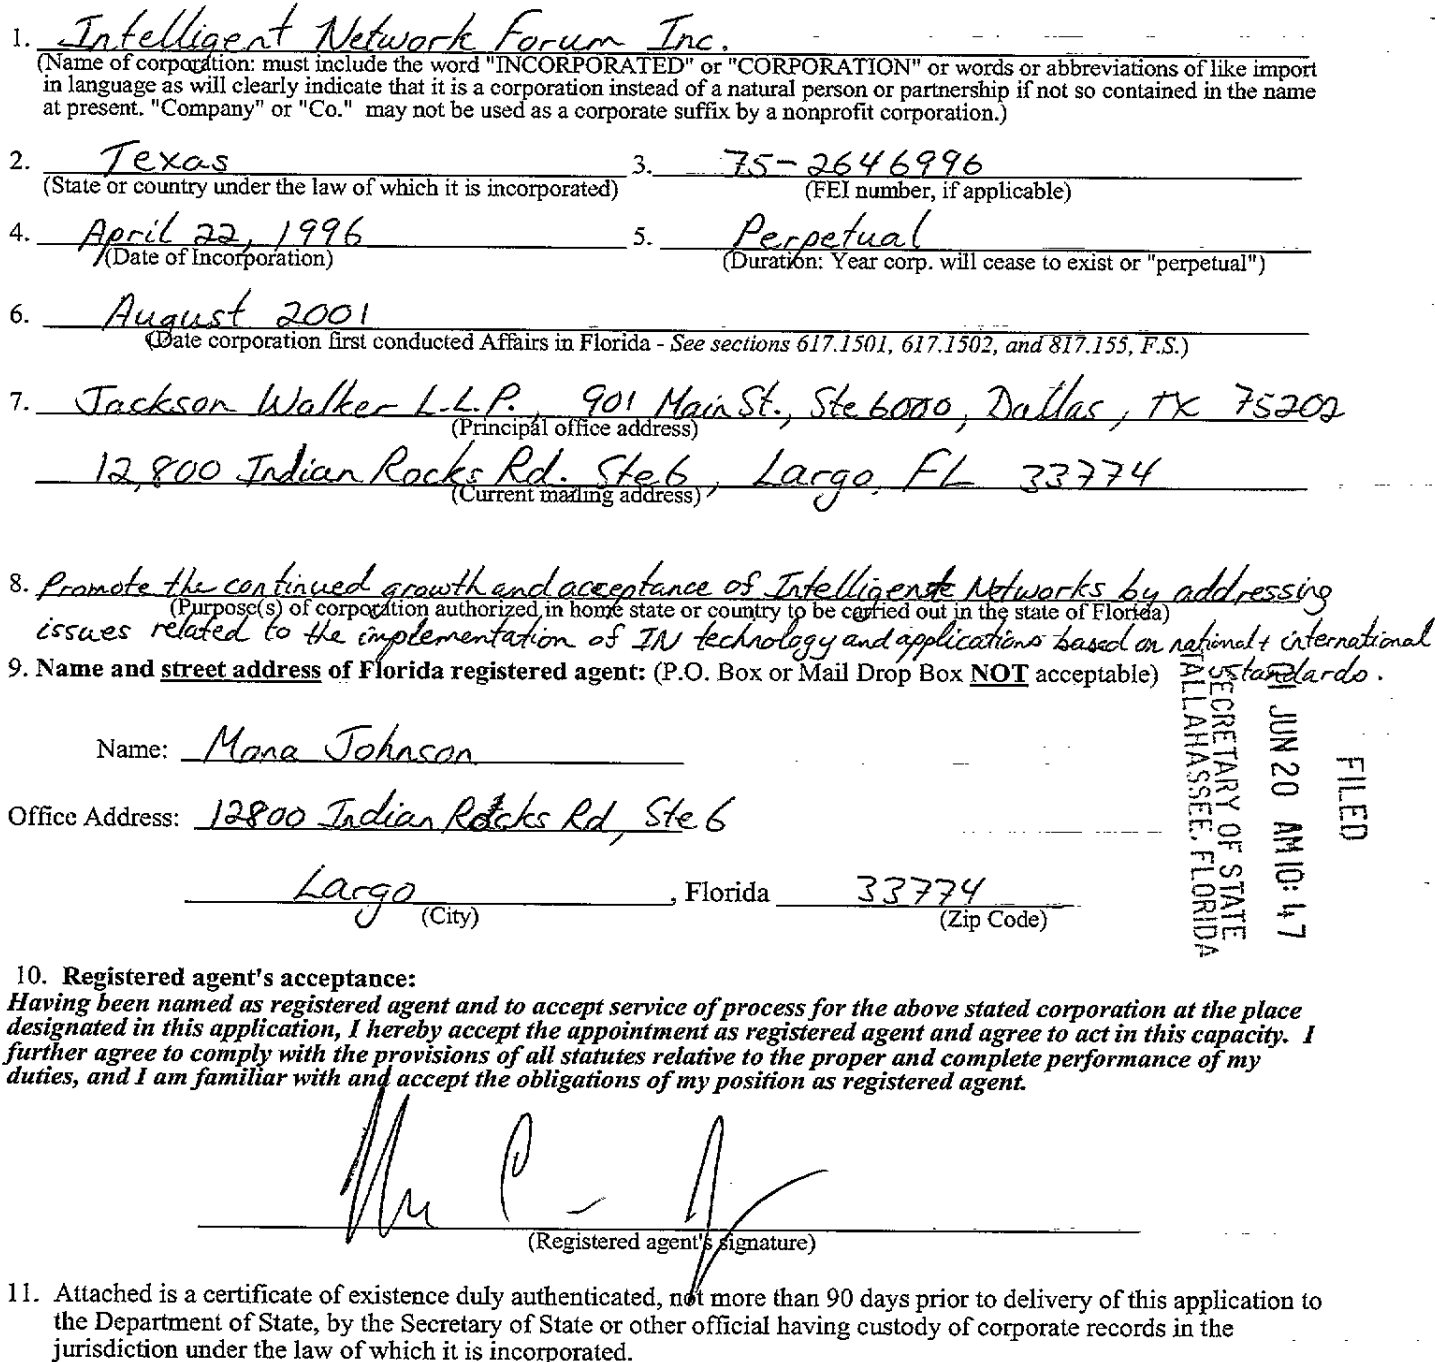 1. Intelligent Network Forum Inc.
(Name of corporation: must include the word "INCORPORATED" or "CORPORATION" or words or abbreviations of like import
in language as will clearly indicate that it is a corporation instead of a natural person or partnership if not so contained in the name
at present. "Company" or "Co." may not be used as a corporate suffix by a nonprofit corporation.)
2. Texas 3. 75-2646996
(State or country under the law of which it is incorporated) (FEI number, if applicable)
4. April 22, 1996 5. Perpetual
(Date of Incorporation) (Duration: Year corp. will cease to exist or "perpetual")
6. August 2001
(Date corporation first conducted Affairs in Florida - See sections 617.1501, 617.1502, and 817.155, F.S.)
7. Jackson Walker L.L.P., 901 Main St., Ste 6000, Dallas, TX 75202
(Principal office address)
12,800 Indian Rocks Rd. Ste 6, Largo, FL 33774
(Current mailing address)
8. Promote the continued growth and acceptance of Intelligent Networks by addressing
(Purpose(s) of corporation authorized in home state or country to be carried out in the state of Florida)
issues related to the implementation of IN technology and applications based on national + international
standards.
9. Name and street address of Florida registered agent: (P.O. Box or Mail Drop Box NOT acceptable)
Name: Mona Johnson
Office Address: 12800 Indian Rocks Rd, Ste 6
Largo, Florida 33774
(City) (Zip Code)
FILED
JUN 20 AM 10:47
SECRETARY OF STATE
TALLAHASSEE, FLORIDA
10. Registered agent's acceptance:
Having been named as registered agent and to accept service of process for the above stated corporation at the place
designated in this application, I hereby accept the appointment as registered agent and agree to act in this capacity. I
further agree to comply with the provisions of all statutes relative to the proper and complete performance of my
duties, and I am familiar with and accept the obligations of my position as registered agent.
(Registered agent's signature)
11. Attached is a certificate of existence duly authenticated, not more than 90 days prior to delivery of this application to
the Department of State, by the Secretary of State or other official having custody of corporate records in the
jurisdiction under the law of which it is incorporated.